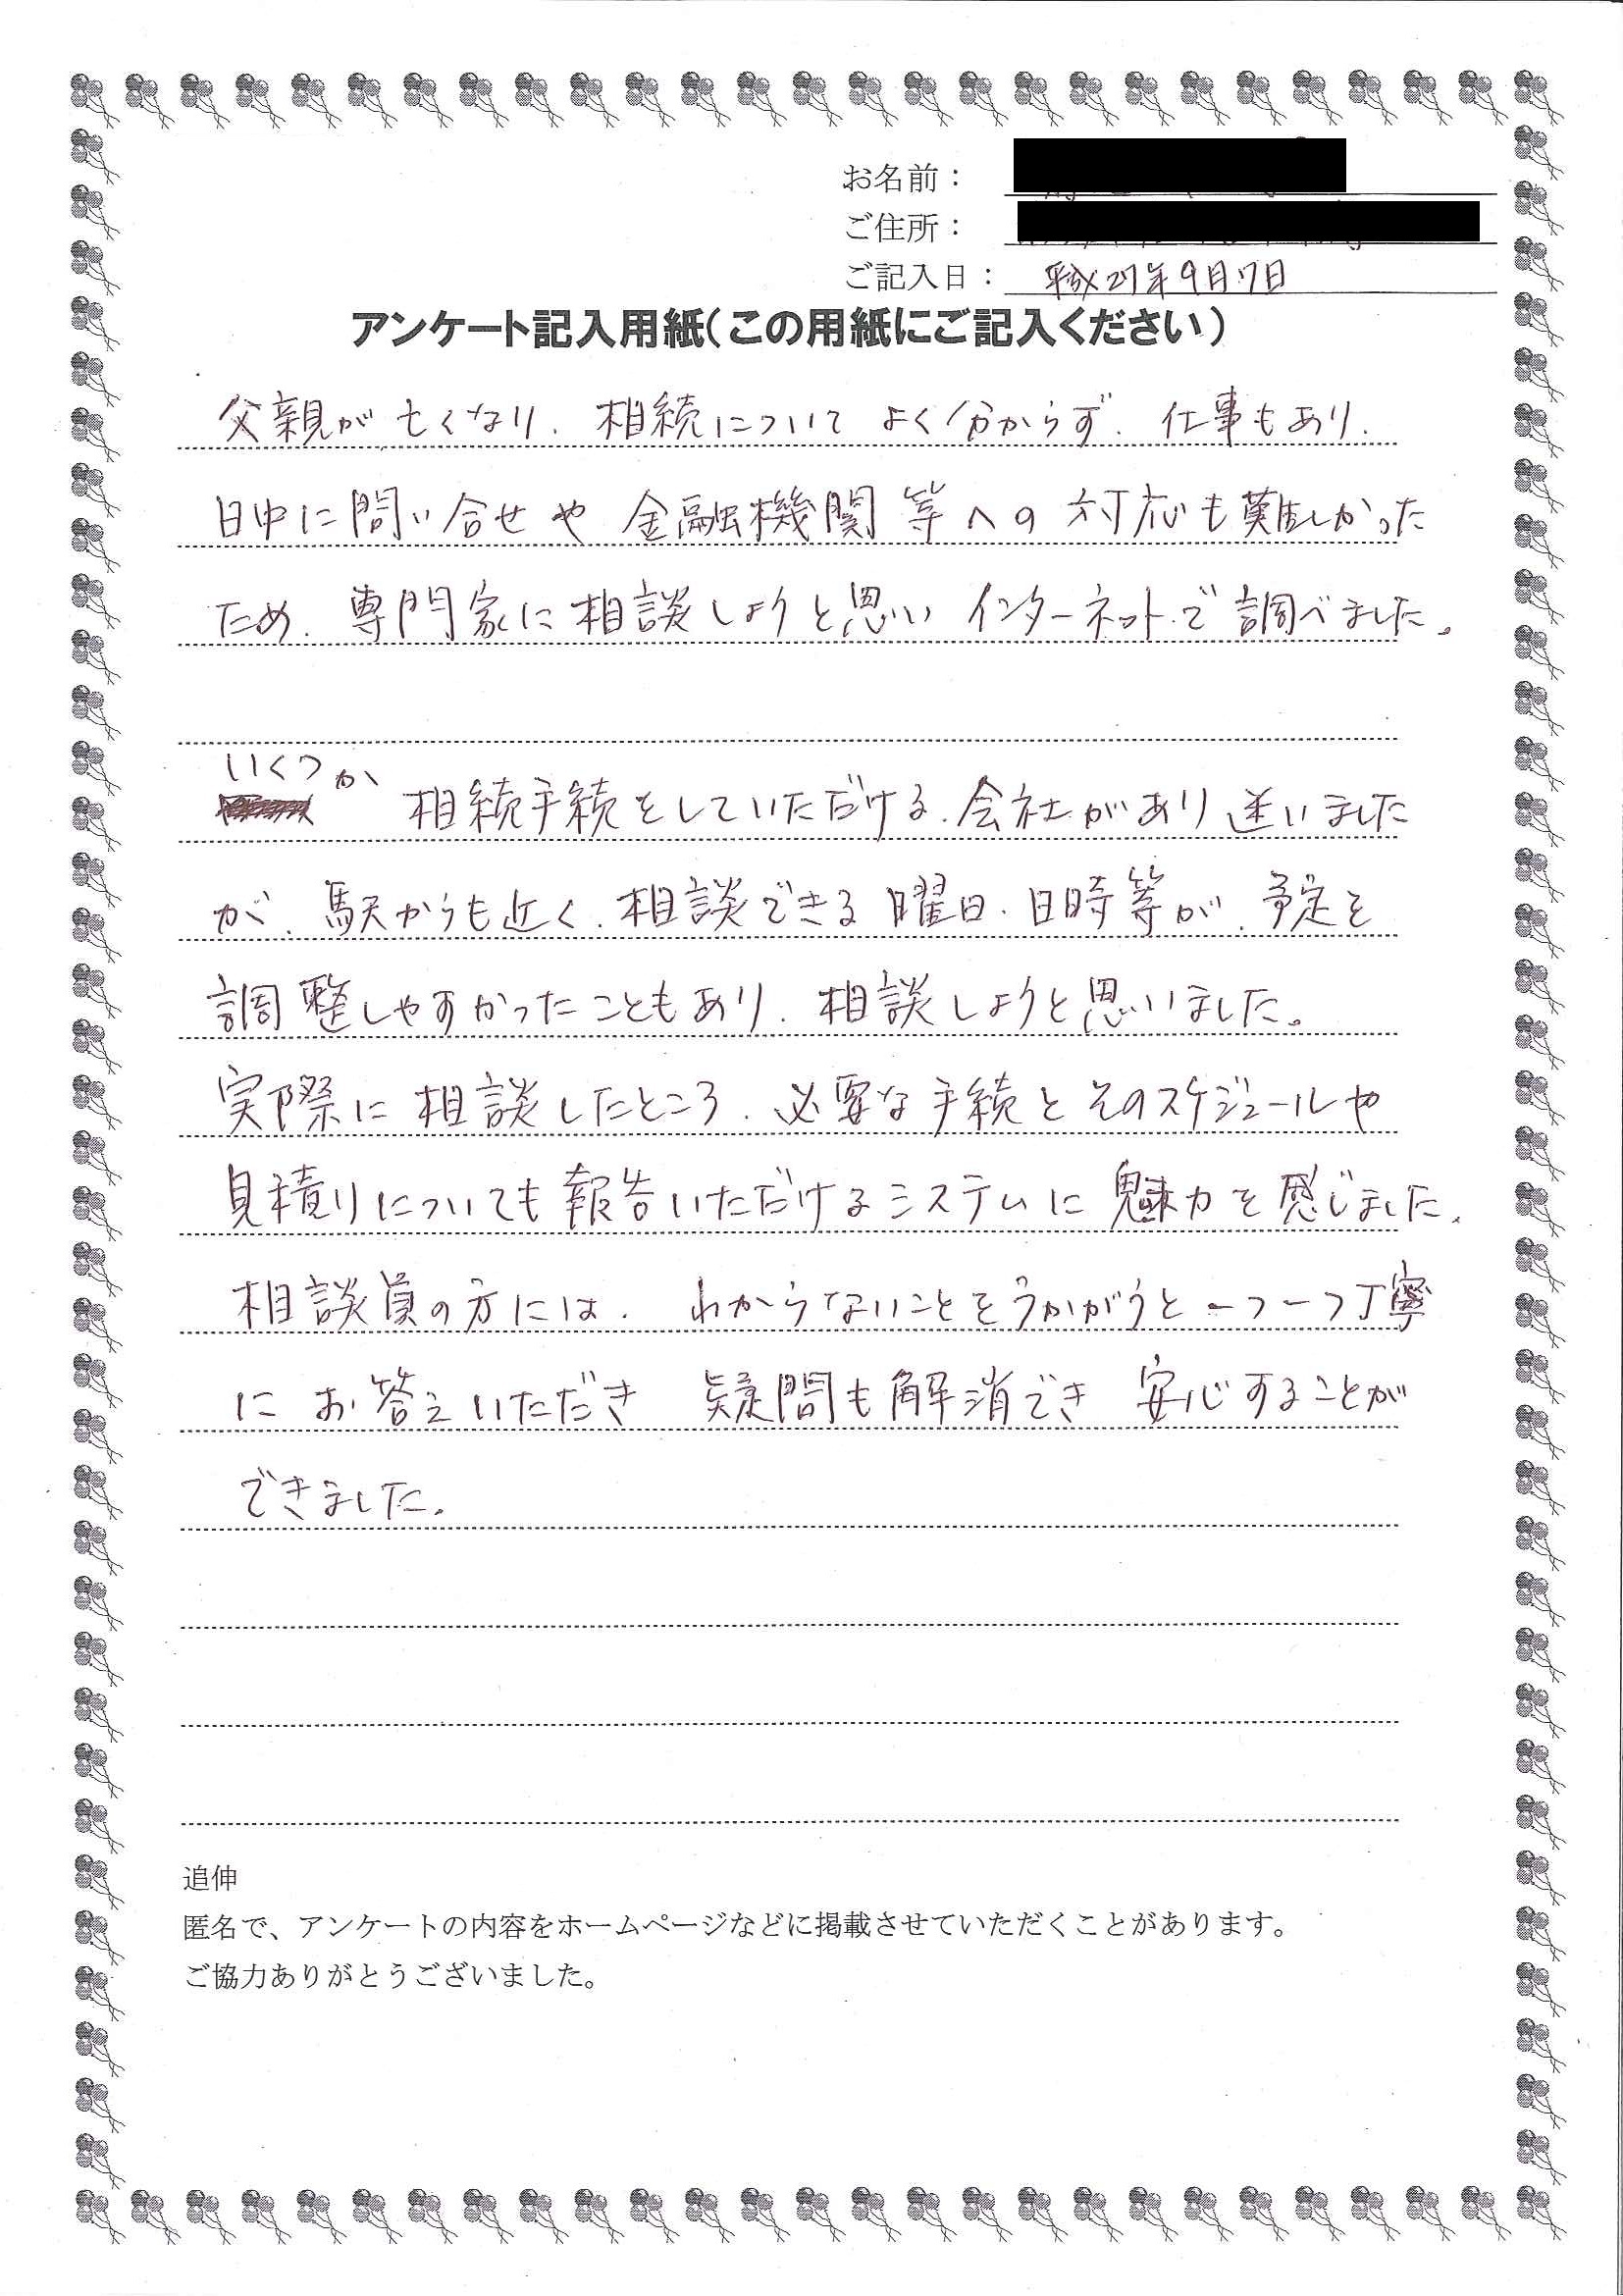 お名前：
ご住所：
ご記入日： 平成27年9月17日
アンケート記入用紙(この用紙にご記入ください)
父親が亡くなり、相続についてよく分からず、仕事もあり、
日中に問い合せや金融機関等への対応も難しかった
ため、専門家に相談しようと思いインターネットで調べました。
いくつか
相続手続をしていただける会社があり迷いました
が、駅からも近く、相談できる曜日、日時等が、予定を
調整しやすかったこともあり、相談しようと思いました。
実際に相談したところ、必要な手続とそのスケジュールや
見積りについても報告いただけるシステムに魅力を感じました。
相談員の方には、わからないことをうかがうと一つ一つ丁寧
にお答えいただき 疑問も解消でき 安心することが
できました。
追伸
匿名で、アンケートの内容をホームページなどに掲載させていただくことがあります。
ご協力ありがとうございました。